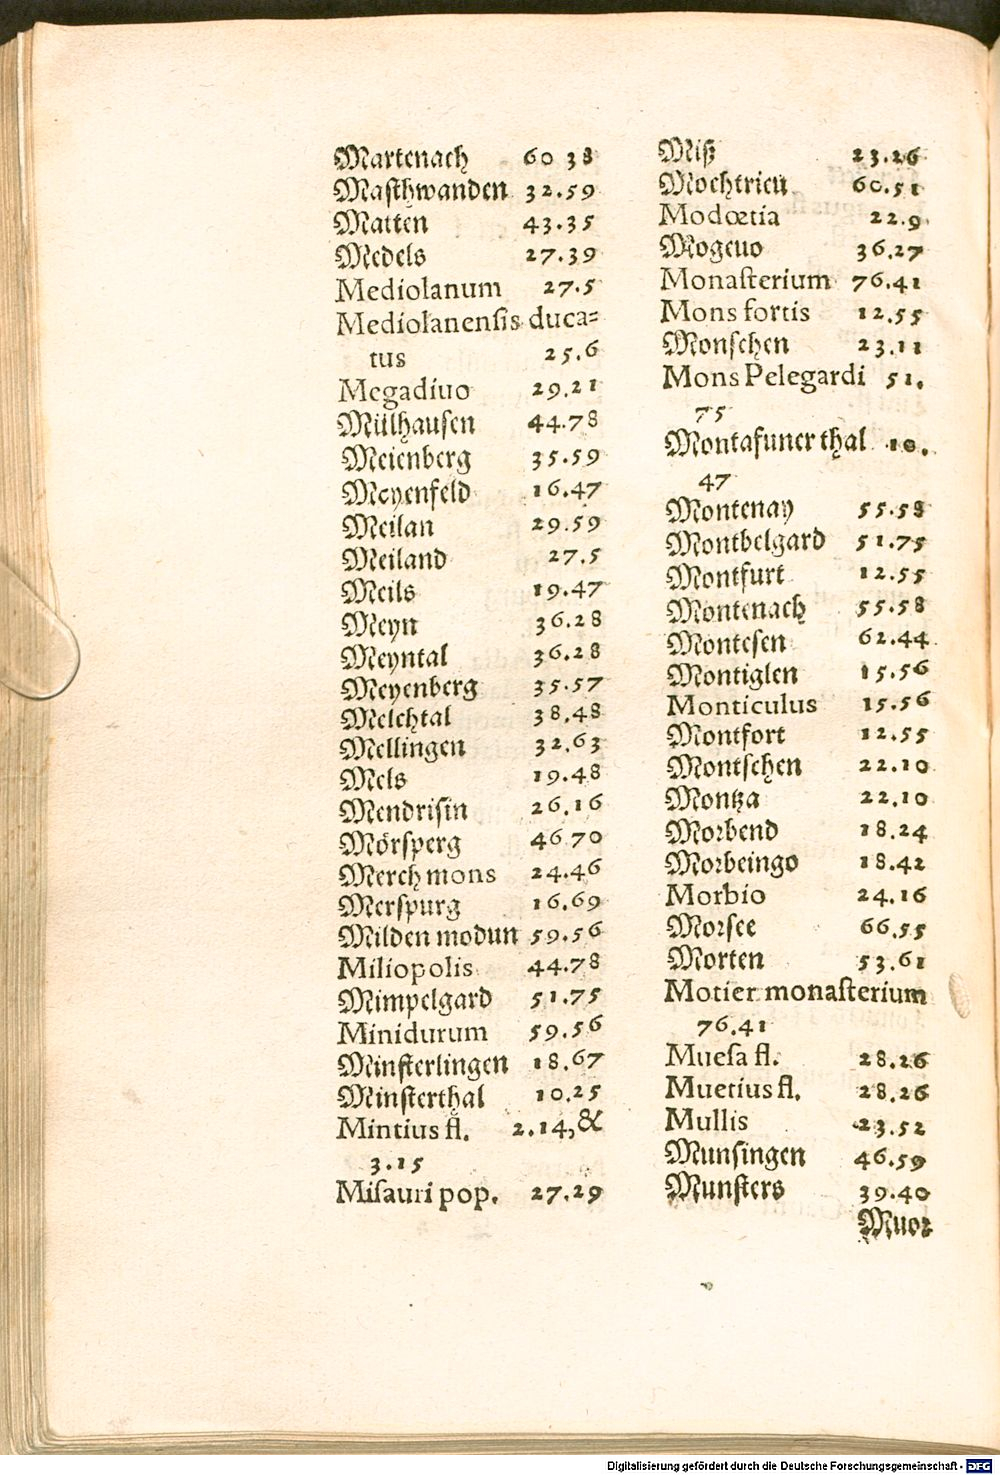 Martenach 60 38
Maſthwanden 32.59
Matten 43.35
Medels 27.39
Mediolanum 27.5
Mediolanenſis duca=
tus 25.6
Megadiuo 29.21
Mülhauſen 44.78
Meienberg 35.59
Meyenfeld 16.47
Meilan 29.59
Meiland 27.5
Meils 19.47
Meyn 36.28
Meyntal 36.28
Meyenberg 35.57
Melchtal 38.48
Mellingen 32.63
Mels 19.48
Mendriſin 26.16
Mörſperg 46 70
Merch mons 24.46
Merſpurg 16.69
Milden modun 59.56
Miliopolis 44.78
Mimpelgard 51.75
Minidurum 59.56
Minſterlingen 18.67
Minſterthal 10.25
Mintius fl. 2.14,&
3.15
Miſauri pop. 27.29
Miß 23.26
Mochtrieu 60.51
Modœtia 22.9.
Mogeuo 36.27
Monaſterium 76.41
Mons fortis 12.55
Monſchen 23.11
Mons Pelegardi 51.
75
Montafuner thal 10.
47
Montenay 55.58
Montbelgard 51.75
Montfurt 12.55
Montenach 55.58
Monteſen 62.44
Montiglen 15.56
Monticulus 15.56
Montfort 12.55
Montſchen 22.10
Montza 22.10
Morbend 18.24
Morbeingo 18.42
Morbio 24.16
Morſee 66.55
Morten 53.61
Motier monaſterium
76.41
Mueſa fl. 28.26
Muetius fl. 28.26
Mullis 23.52
Munſingen 46.59
Munſters 39.40
Muor
Digitalisierung gefördert durch die Deutsche Forschungsgemeinschaft - DFG